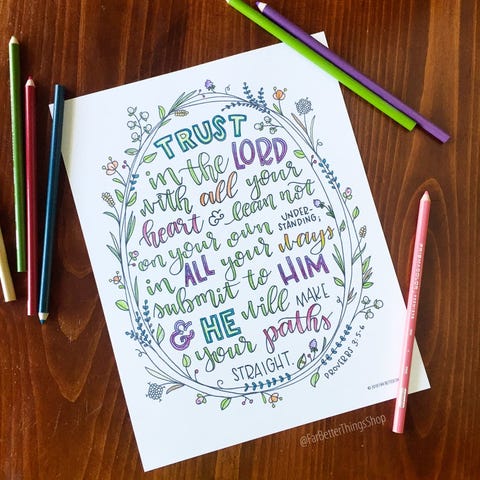 TRUST
in the LORD
with all your
heart & lean not
on your own UNDER-
STANDING;
in ALL your ways
submit to HIM
& HE will MAKE
your paths
STRAIGHT.
PROVERBS 3:5-6
@FarBetterThingsShop